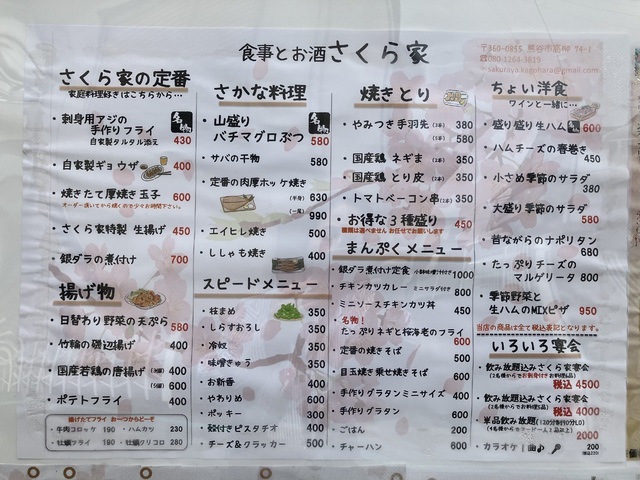 食事とお酒 さくら家
〒360-0845 熊谷市
☎080-1264-3819
さくら家の定番
家庭料理好きはこちらから…
・刺身用アジの 名物
手作りフライ
自家製タルタル添え 430
自家製ギョウザ 400
・焼きたて厚焼き玉子 600
オーダー頂いてから焼くので少々お時間下さい。
・さくら家特製 生揚げ 450
・銀ダラの煮付け 700
揚げ物
・日替わり野菜の天ぷら 580
・竹輪の磯辺揚げ 400
・国産若鶏の唐揚げ (3個) 400
(5個) 600
・ポテトフライ 400
揚げたてフライ お一つからどーぞ
・牛肉コロッケ 190 ・ハムカツ 230
・牡蠣フライ 190 ・牡蠣クリコロ 280
さかな料理
・山盛り 名物
バチマグロぶつ 580
・サバの干物 580
・定番の肉厚ホッケ焼き
(半身) 630
(一尾) 990
・エイヒレ焼き 500
・ししゃも焼き 400
スピードメニュー
・枝まめ 350
・しらすおろし 350
・冷奴 350
・味噌きゅうり 350
・お新香 400
・やわりめ 600
・ポッキー 300
・殻付きピスタチオ 400
・チーズ&クラッカー 500
焼きとり
・やみつき手羽先 (2本) 380
(3本) 580
・国産鶏 ネギま (2本) 380
・国産鶏 とり皮 (2本) 350
・トマトベーコン串 (2本) 350
・お得な3種盛り 450
種類は選べません お任せでお願いします
まんぷくメニュー
・銀ダラ煮付け定食 小鉢味噌汁付き 1000
・チキンカツカレー ミニサラダ付き 800
・ミニソースチキンカツ丼 450
・名物!
たっぷりネギと桜海老のフライ 600
・定番の焼きそば 500
・目玉焼き乗せ焼きそば 600
・手作りグラタンミニサイズ 400
・手作りグラタン 600
・ごはん 200
・チャーハン 600
ちょい洋食
ワインと一緒に…
・盛り盛り生ハム 名物 600
・ハムチーズの春巻き 450
・小さめ季節のサラダ 380
・大盛り季節のサラダ 580
・昔ながらのナポリタン 680
・たっぷりチーズの
マルゲリータ 800
・季節野菜と
生ハムのMIXピザ 950
当店の商品は全て税込表記となります。
いろいろ宴会
・飲み放題込みさくら家宴会
(2名様からでお刺身付きお料理6品)
税込 4500
・飲み放題込みさくら家宴会
(2名様からでお料理5品)
税込 4000
・単品飲み放題
2000
・カラオケ 1曲 200